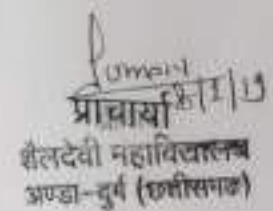 प्राचार्या
शैलदेवी महाविद्यालय
अण्डा-दुर्ग (छत्तीसगढ़)